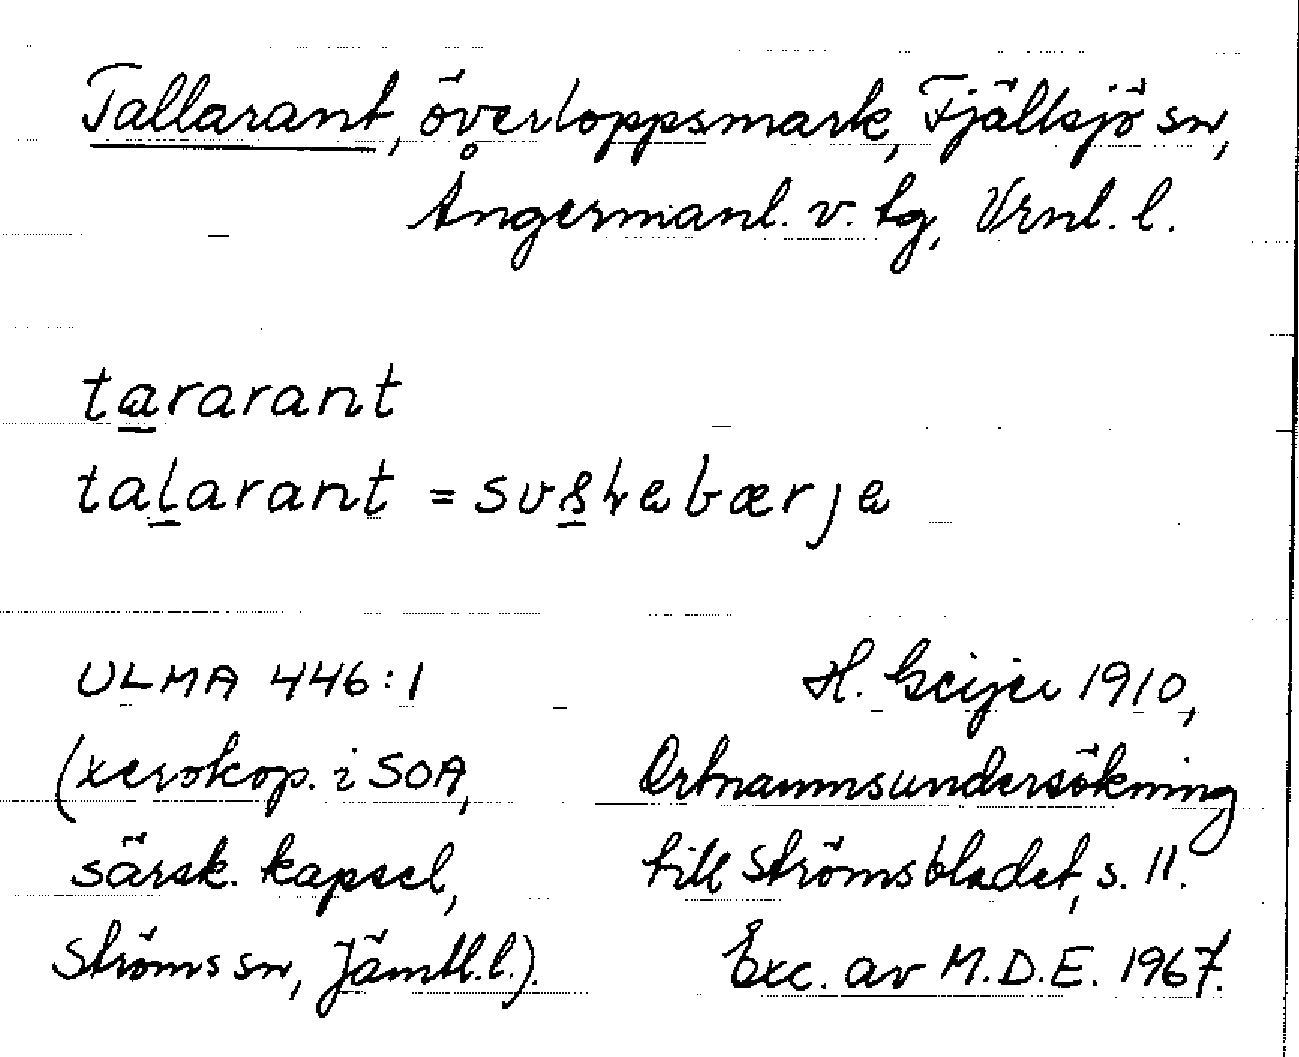 Tallarant, överloppsmark, Fjällsjö sn,
Ångermanl. v. tg, Vrnl. l.
tararant
talarant =
ULMA 446:1
(xerokop. i SOA,
särsk. kapsel,
Ströms sn, Jämtl. l.).
H. Geijer 1910,
Ortnamnsundersökning
till Strömsbladet, s. 11.
Exc. av M.D.E. 1967.